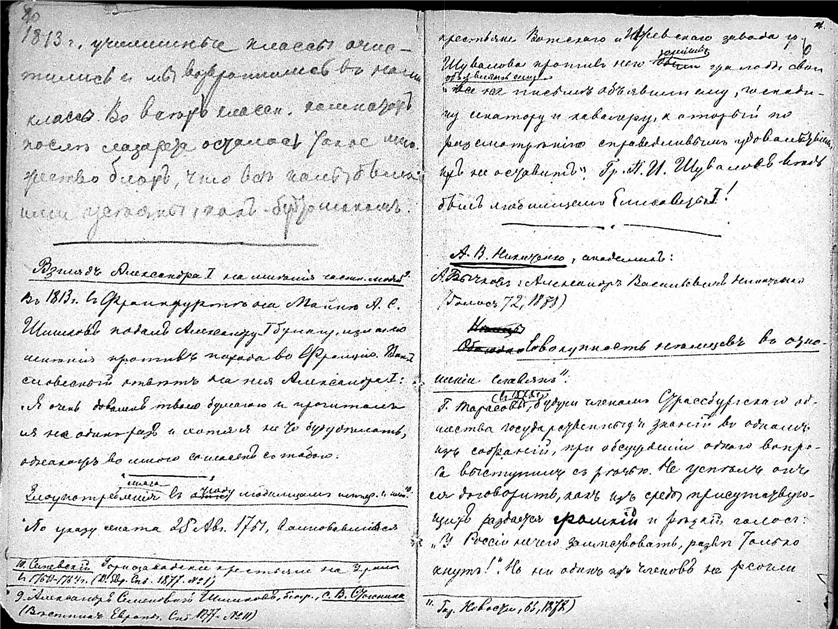 1813 г. училищные классы очис-
тились и мы возвратились въ наши
классы. Во всехъ классн. комнатахъ
послѣ лазарета осталось такое мно-
жество блохъ, что всѣ полы были
Взглядъ Александра I на мнѣнія частн. людей 9.
Въ 1813 г. въ Франкфуртѣ на Майнѣ А. С.
Шишковъ подалъ Александру I бумагу, излагаю
мнѣнія противъ похода во Францію. Вотъ
словесной отвѣтъ на нея Александра I:
"Я очень доволенъ твоею бумагою и прочиталъ
ея не одинъ разъ и хотя я не то буду дѣлать,
однакожъ во многомъ согласенъ съ тобою.
Злоупотребленія въ угоду любимцамъ импер. 10.
"По указу сената 28 Авг. 1761,
10. Семевскій. Горнозаводскіе крестьяне на Уралѣ
въ 1760-1764 г. (В. Евр. Спб. 1877. № 1)
9. Александръ Семеновичъ Шишковъ, біогр., с. В. Стоюнина
(Вѣстникъ Европы. Спб 1877. № 11)
крестьяне Вотскаго и Ижевскаго завода гр.
Шувалова противъ него
письмъ объявили ему, господи-
ну сенатору и кавалеру, который по
разсмотрѣнію справедливымъ удовольствіемъ
ихъ не оставитъ". Гр. П. И. Шуваловъ
былъ любимцемъ Елисаветы I!
А. В. Никитенко, академикъ:
А. Бычковъ: Александръ Васильевичъ Никитенко
(Голосъ 72, 1878)
Совокупность нѣмцевъ въ отно-
шеніи славянъ 11.
Г. Тарасовъ, (въ 1878) будучи членомъ Страсбургскаго об-
щества государственныхъ знаній въ одномъ
изъ собраній, при обсужденіи одного вопро-
са выступилъ съ рѣчью. Не успѣлъ онъ
ея договорить, какъ изъ среды присутствую-
щихъ раздался громкій и рѣзкій голосъ:
"У Россіи нечего заимствовать, развѣ только
кнутъ!". Но ни одинъ изъ членовъ не
11. Газ. Новости, 65, 1878)